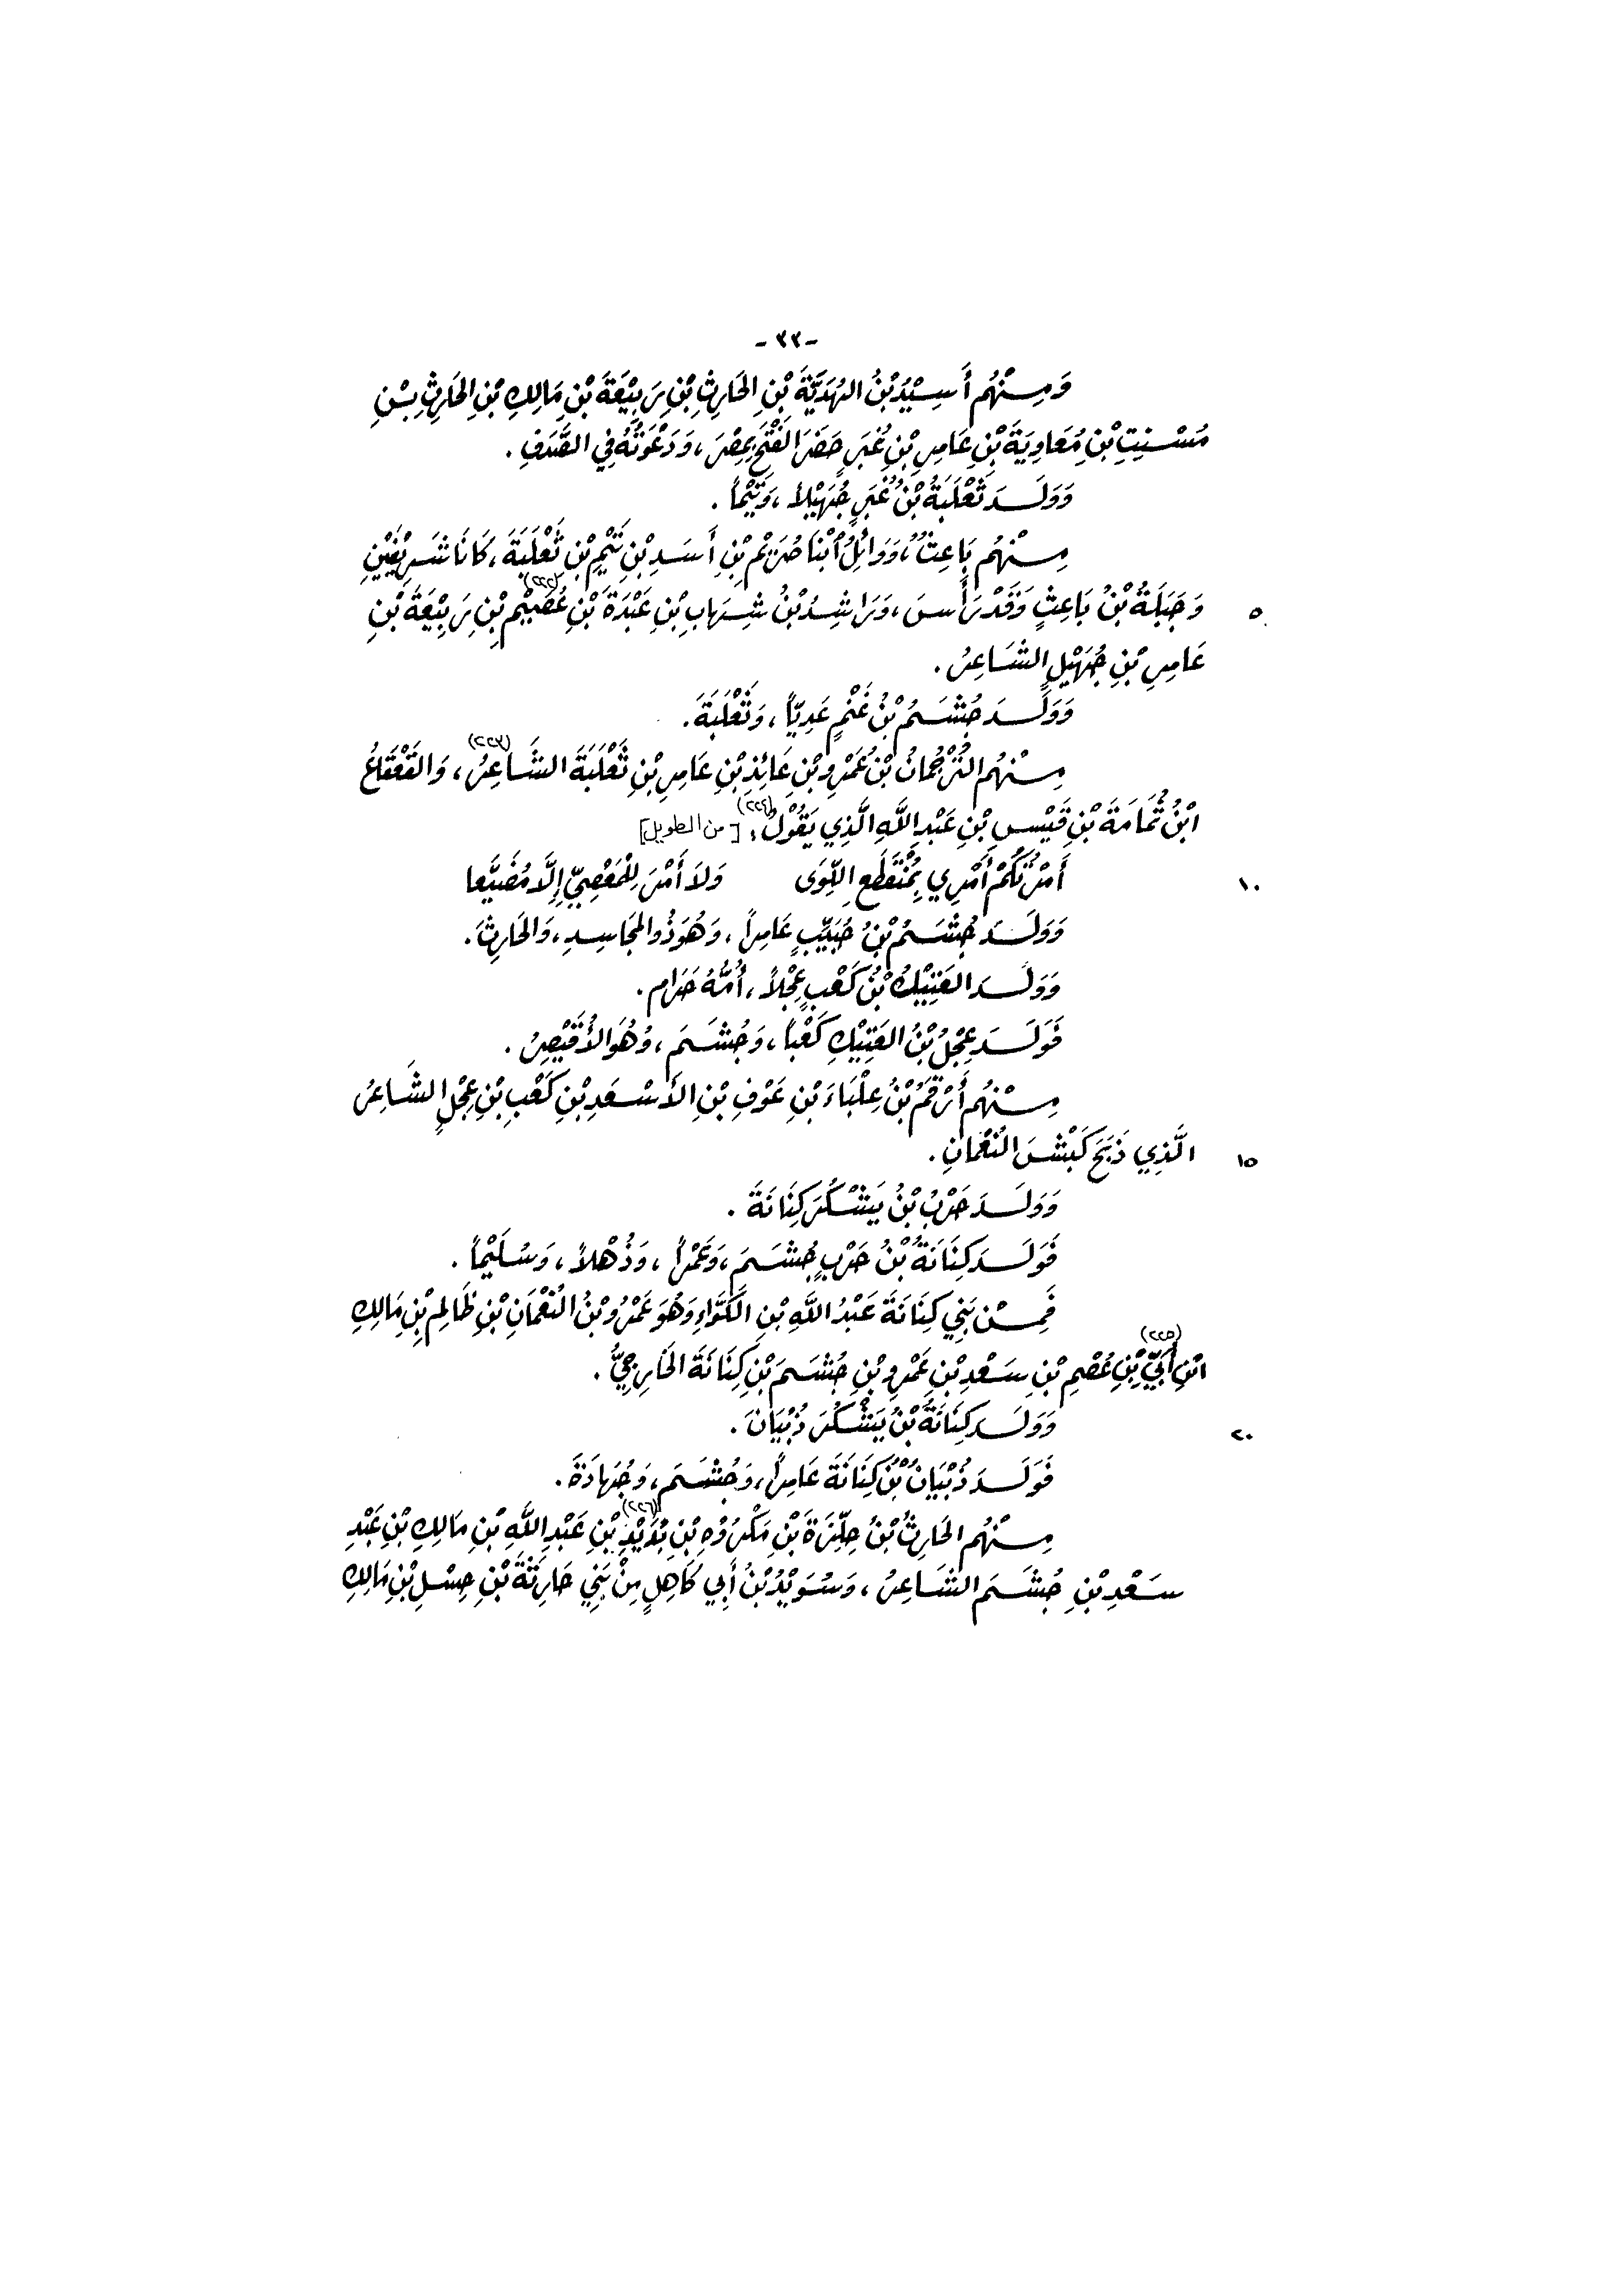 - ٣٣ -
وَمِنْهُم أَسِيْدُ بْنُ الهُدَيَّةَ بْنِ الحَارِثِ بْنِ رَبِيْعَةَ بْنِ مَالِكِ بْنِ الحَارِثِ بْنِ
مُسْنِتِ بْنِ مُعَاوِيَةَ بْنِ عَامِرِ بْنِ غُبَرٍ حَضَرَ الفَتْحَ بِمِصْرَ، وَدَعْوَتُهُ فِي الصَّدَفِ.
وَوَلَدَ ثَعْلَبَةُ بْنُ غُبَرٍ جُهَيْلاً، وَتَيْماً.
مِنْهُم بَاعِثٌ، وَوَائِلٌ ابْنَا صُرَيْمِ بْنِ أَسَدِ بْنِ تَيْمِ بْنِ ثَعْلَبَةَ، كَانَا شَرِيْفَيْنِ
٥ وَجَبَلَةُ بْنُ بَاعِثٍ وَقَدْ رَأَسَ، وَرَاشِدُ بْنُ شِهَابِ بْنِ عَبْدَةَ بْنِ عُصَيْمِ (٢٢٢) بْنِ رَبِيْعَةَ بْنِ
عَامِرِ بْنِ جُهَيْلٍ الشَّاعِرُ.
وَوَلَدَ جُشَمُ بْنُ غَنْمٍ عَدِيّاً، وَثَعْلَبَةَ.
مِنْهُم التُّرْجُمَانُ بْنُ عَمْرِو بْنِ عَائِذِ بْنِ عَامِرِ بْنِ ثَعْلَبَةَ الشَّاعِرُ (٢٢٣)، وَالقَعْقَاعُ
ابْنُ ثُمَامَةَ بْنِ قَيْسِ بْنِ عَبْدِ اللَّهِ الَّذِي يَقُوْلُ (٢٢٤): [من الطويل]
١٠ أَمَرْتُكُمْ أَمْرِي بِمُنْقَطَعِ اللِّوَى وَلاَ أَمْرَ لِلْمَعْصِيِّ إِلَّا مُضَيَّعا
وَوَلَدَ جُشَمُ بْنُ حُبَيِّبٍ عَامِراً، وَهُوَ ذُو المَجَاسِدِ، وَالحَارِثَ.
وَوَلَدَ العَتِيْكُ بْنُ كَعْبٍ عِجْلاً، أُمُّهُ حَرَام.
فَوَلَدَ عِجْلُ بْنُ العَتِيْكِ كَعْباً، وَجُشَمَ، وَهُوَ الأُقَيْصِرُ.
مِنْهُم أَرْقَمُ بْنُ عِلْبَاءَ بْنِ عَوْفِ بْنِ الأَسْعَدِ بْنِ كَعْبِ بْنِ عِجْلٍ الشَّاعِرُ
١٥ الَّذِي ذَبَحَ كَبْشَ النُّعْمَانِ.
وَوَلَدَ حَرْبُ بْنُ يَشْكُرَ كِنَانَةَ.
فَوَلَدَ كِنَانَةُ بْنُ حَرْبٍ جُشَمَ، وَعَمْراً، وَذُهْلاً، وَسُلَيْماً.
فَمِنْ بَنِي كِنَانَةَ عَبْدُ اللَّهِ بْنِ الكَوَّاءِ وَهُوَ عَمْرُو بْنُ النُّعْمَانِ بْنِ ظَالِمِ بْنِ مَالِكِ
ابْنِ أُبَيِّ (٢٢٥) بْنِ عُصْمِ بْنِ سَعْدِ بْنِ عَمْرِو بْنِ جُشَمَ بْنِ كِنَانَةَ الخَارِجِيُّ.
٢٠ وَوَلَدَ كِنَانَةُ بْنُ يَشْكُرَ ذُبْيَانَ.
فَوَلَدَ ذُبْيَانُ بْنُ كِنَانَةَ عَامِراً، وَجُشَمَ، وَجُهَادَةَ.
مِنْهُم الحَارِثُ بْنُ حِلِّزَةَ بْنِ مَكْرُوْهِ بْنِ بُدَيْدِ (٢٢٦) بْنِ عَبْدِ اللَّهِ بْنِ مَالِكِ بْنِ عَبْدِ
سَعْدِ بْنِ جُشَمَ الشَّاعِرُ، وَسُوَيْدُ بْنُ أَبِي كَاهِلٍ مِنْ بَنِي حَارِثَةَ بْنِ حِسْلِ بْنِ مَالِكِ